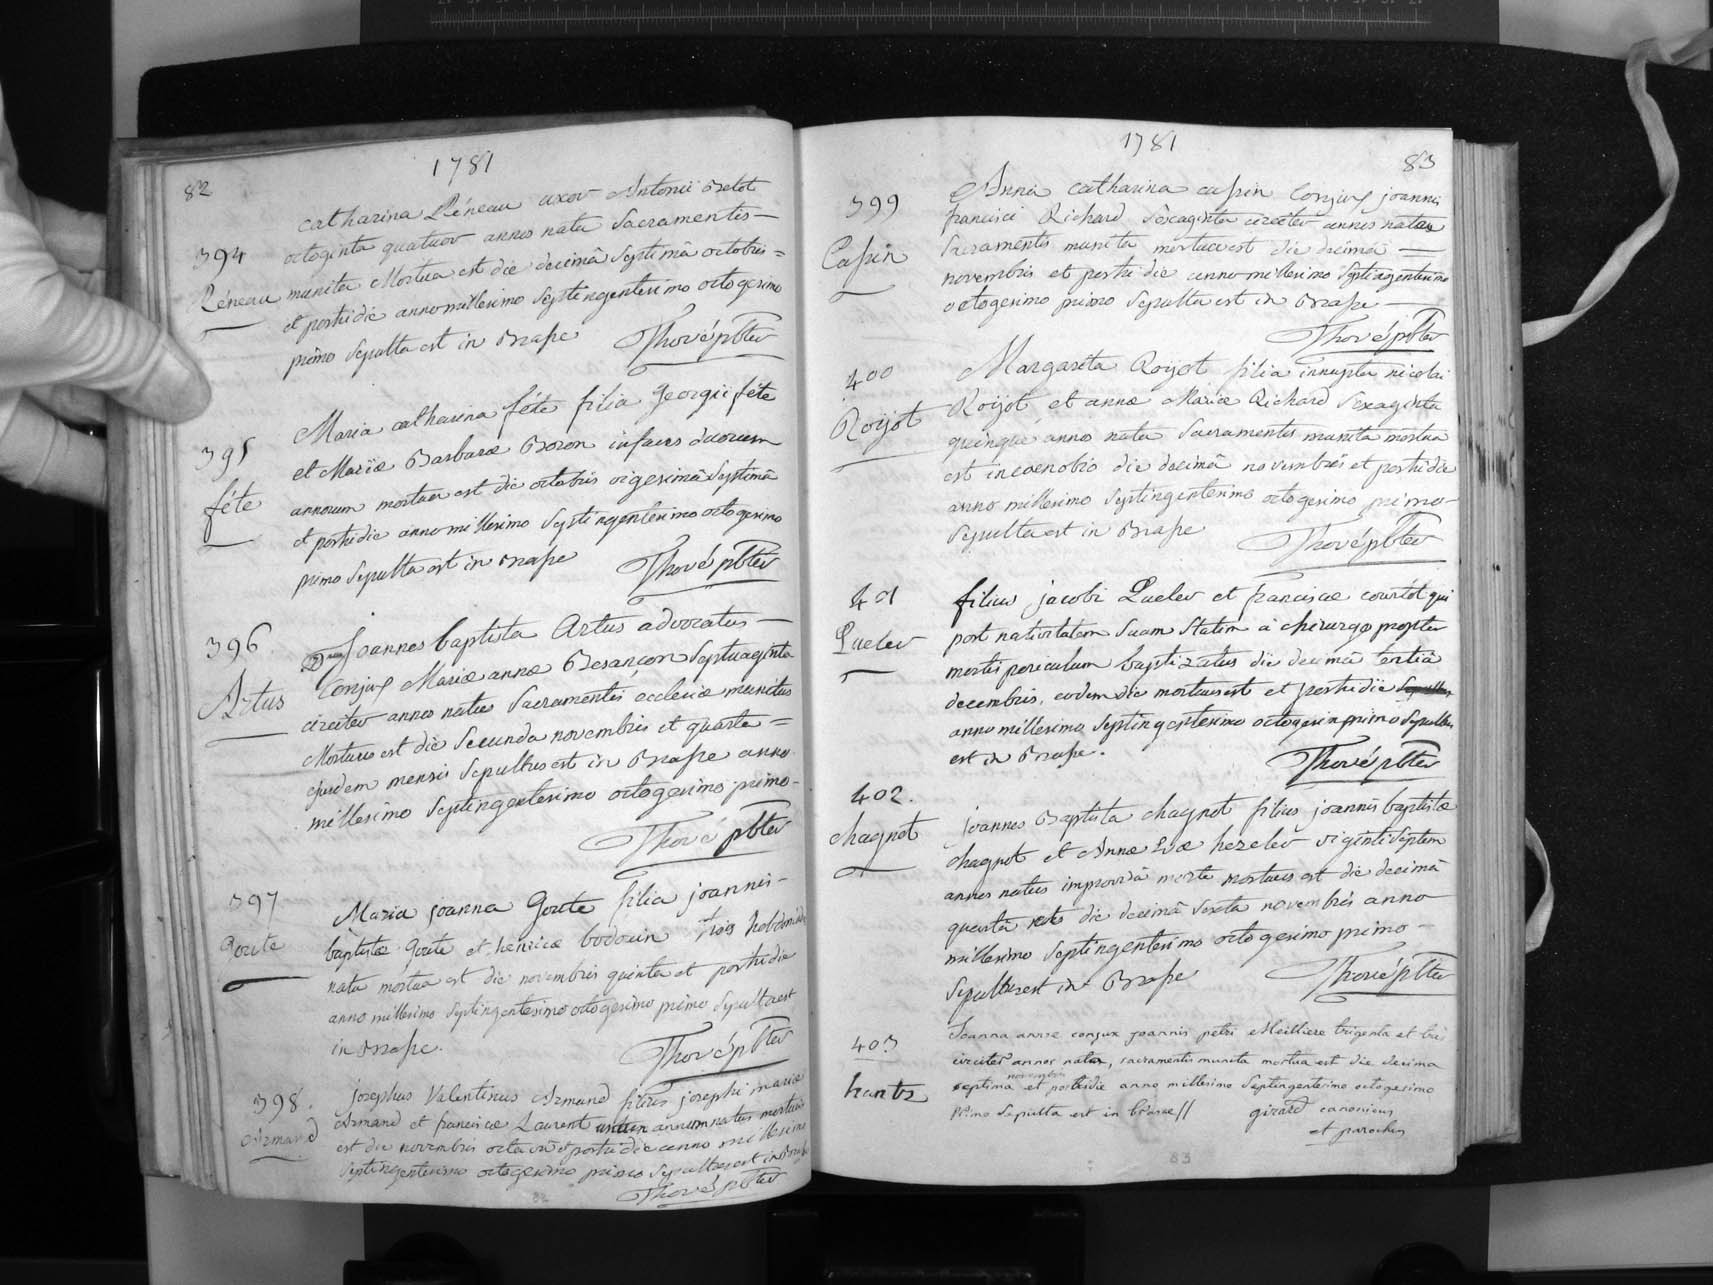 82
1781
394
Réneau
catharina Réneau uxor Antonii Belot
octoginta quatuor annos nata Sacramentis —
munita Mortua est die decimâ Septimâ octobris =
et postridie anno millesimo Septingentesimo octogesimo
primo Sepulta est in Brasse
Thoré pbter
395
féte
Maria catharina féte filia Georgii féte
et Mariæ Barbaræ Boron infans duorum
annorum mortua est die octobris vigesimâ Septimâ
et postridie anno millesimo Septingentesimo octogesimo
primo Sepulta est in Brasse
Thoré pbter
396
Artus
Joannes baptista Artus advocatus —
Conjux Mariæ annæ Besançon Septuaginta
circiter annos natus Sacramentis ecclesiæ munitus
Mortuus est die Secunda novembris et quarta =
ejusdem mensis Sepultus est in Brasse anno
millesimo Septingentesimo octogesimo primo -
Thoré pbter
397
Goute
Maria joanna Goute filia joannis -
baptistæ Goute et henricæ bodouin
nata mortua est die novembris quinta et postridie
anno millesimo Septingentesimo octogesimo primo Sepulta est
in Brasse.
Thoré pbter
398.
Armand
josephus Valentinus Armand filius josephi mariæ
Armand et franciscæ Laurent annum natus mortuus
est die novembris octavâ et postridie anno millesimo
Septingentesimo octogesimo primo Sepultus est in Brasse
Thoré pbter
82
1781
83
399
Cassin
Anna catharina cassin Conjux joannis
francisci Richard Sexaginta circiter annos nata
Sacramentis munita mortua est die decimâ —
novembris et postridie anno millesimo Septingentesimo
octogesimo primo Sepulta est in Brasse —
Thoré pbter
400
Roijot
Margarita Roijot filia innupta nicolai
Roijot et annæ Mariæ Richard Sexaginta
quinque anno nata Sacramentis munita mortua
est in coenobio die decimâ novembris et postridie
anno millesimo Septingentesimo octogesimo primo -
Sepulta est in Brasse
Thoré pbter
401
Lueler
filius jacobi Lueler et franciscæ courtot qui
post nativitatem Suam Statim a chirurgo propter
mortis periculum baptizatus die decimâ tertiâ
decembris, eodem die mortuus est et postridie
anno millesimo Septingentesimo octogesimo primo Sepultus
est in Brasse.
Thoré pbter
402.
chagnot
joannes Baptista chagnot filius joannis baptistæ
chagnot et Annæ Evæ hezeler viginti Septem
annos natus improvisâ morte mortuus est die decimâ
quartâ die decimâ Sexta novembris anno
millesimo Septingentesimo octogesimo primo -
Sepultus est in Brasse
Thoré pbter
403
hantz
Joanna anne conjux joannis petri Meilliere triginta et tres
circiter annos nata, sacramentis munita mortua est die decima
novembris
septima et postridie anno millesimo Septingentesimo octogesimo
Primo Sepulta est in brasse //
girard canonicus
et parochus
83